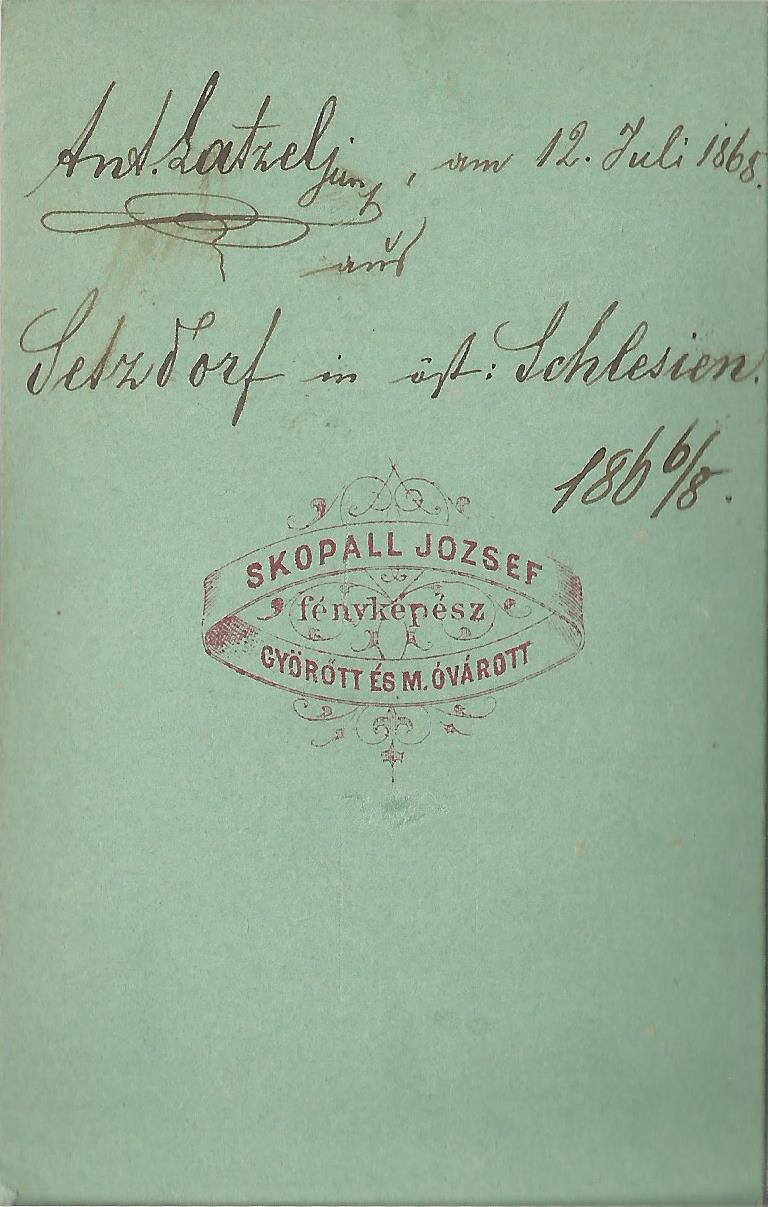 Ant. Latzel jun, am 12. Juli 1868.
aus
Setzdorf in öst: Schlesien.
186 6/8.
SKOPALL JOZSEF
fényképész
GYÖRÖTT ÉS M. ÓVÁROTT